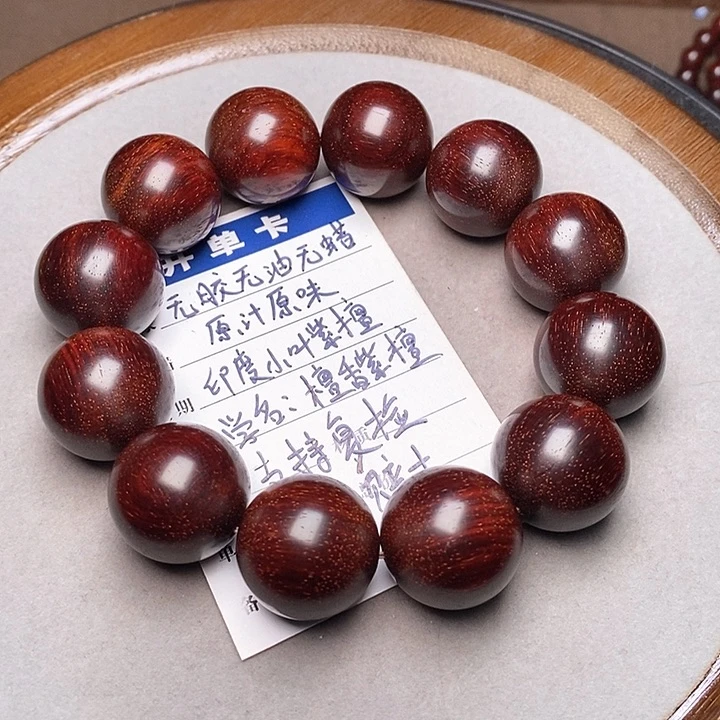 开单卡
无胶无油无蜡
原汁原味
印度小叶紫檀
期
学名：檀香紫檀
支持复检
单
备